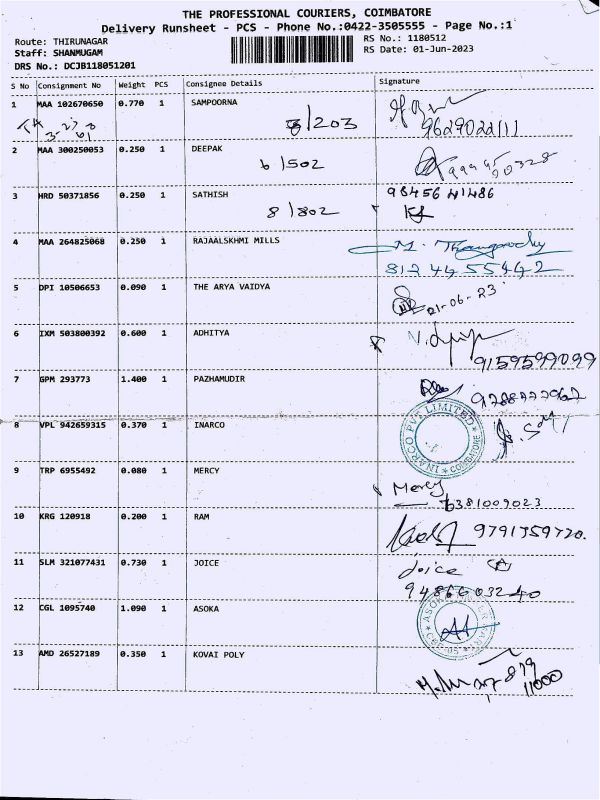 THE PROFESSIONAL COURIERS, COIMBATORE
Delivery Runsheet - PCS - Phone No.:0422-3505555 - Page No.:1
Route: THIRUNAGAR
RS No.: 1180512
Staff: SHANMUGAM
RS Date: 01-Jun-2023
DRS No.: DCJB118051201
S No Consignment No Weight PCS Consignee Details Signature
1 MAA 102670650 0.770 1 SAMPOORNA
3/203
9629022111
2 MAA 300250053 0.250 1 DEEPAK
6/502
3 HRD 50371856 0.250 1 SATHISH
98456 41486
8/802
4 MAA 264825068 0.250 1 RAJAALSKHMI MILLS
812 44 55442
5 DPI 10506653 0.090 1 THE ARYA VAIDYA
01-06-23
6 IXM 503800392 0.600 1 ADHITYA
9159599099
7 GPM 293773 1.400 1 PAZHAMUDIR
8 VPL 942659315 0.370 1 INARCO
INARCO PVT LIMITED
COIMBATORE
9 TRP 6955492 0.080 1 MERCY
Mercy
6381009023
10 KRG 120918 0.200 1 RAM
9791359720.
11 SLM 321077431 0.730 1 JOICE
Joice
9486603240
12 CGL 1095740 1.090 1 ASOKA
ASOKA
13 AMD 26527189 0.350 1 KOVAI POLY